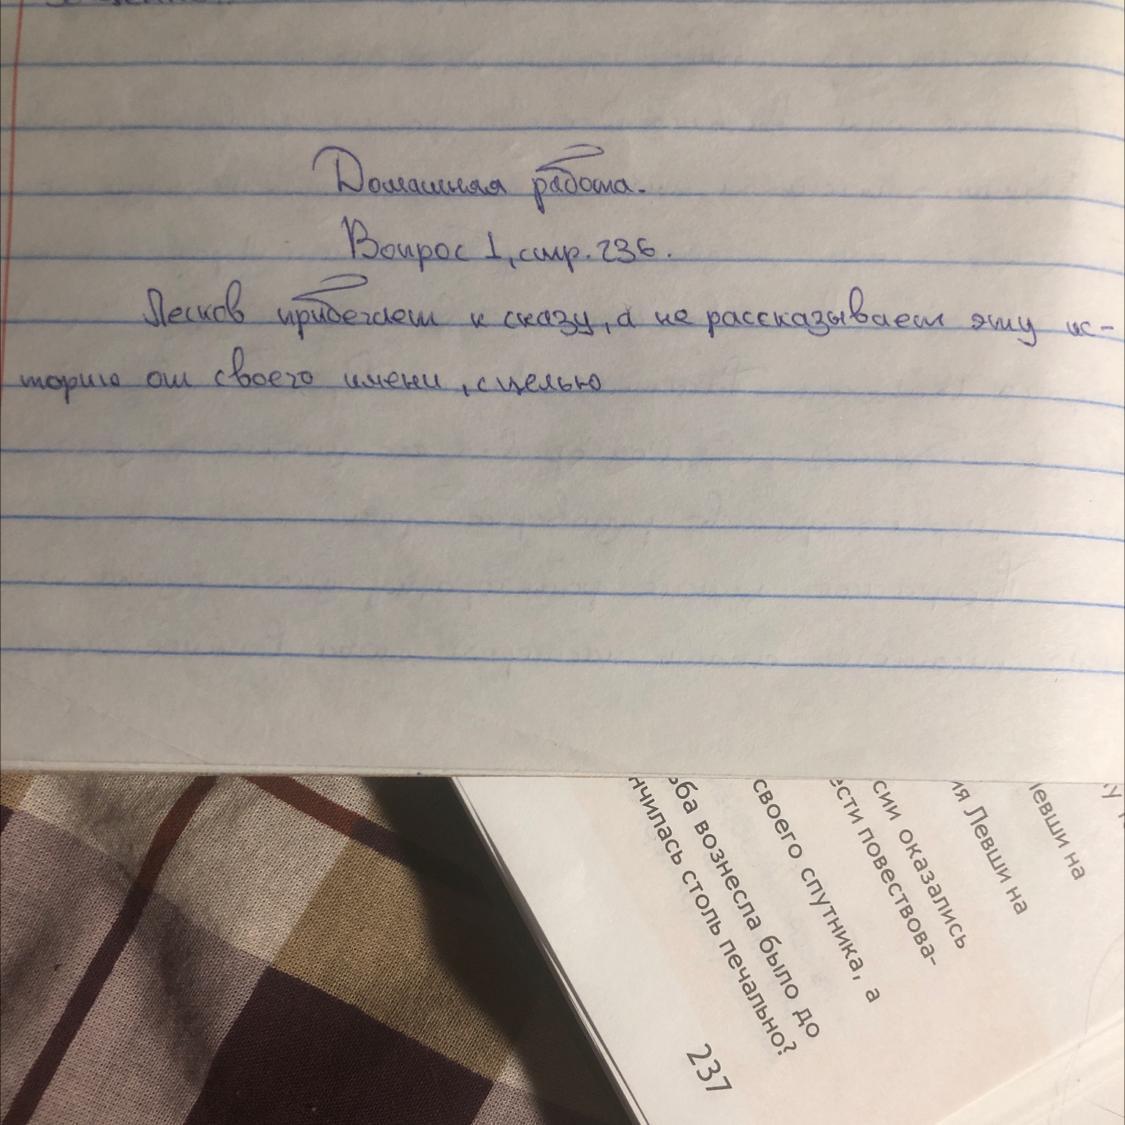 Домашняя работа.
Вопрос 1, стр. 236.
Лесков прибегает к сказу, а не рассказывает эту ис-
торию от своего имени, с целью
левши на
ия Левши на
сии оказались
ести повествова-
своего спутника, а
ьба вознесла было до
нчилась столь печально?
237